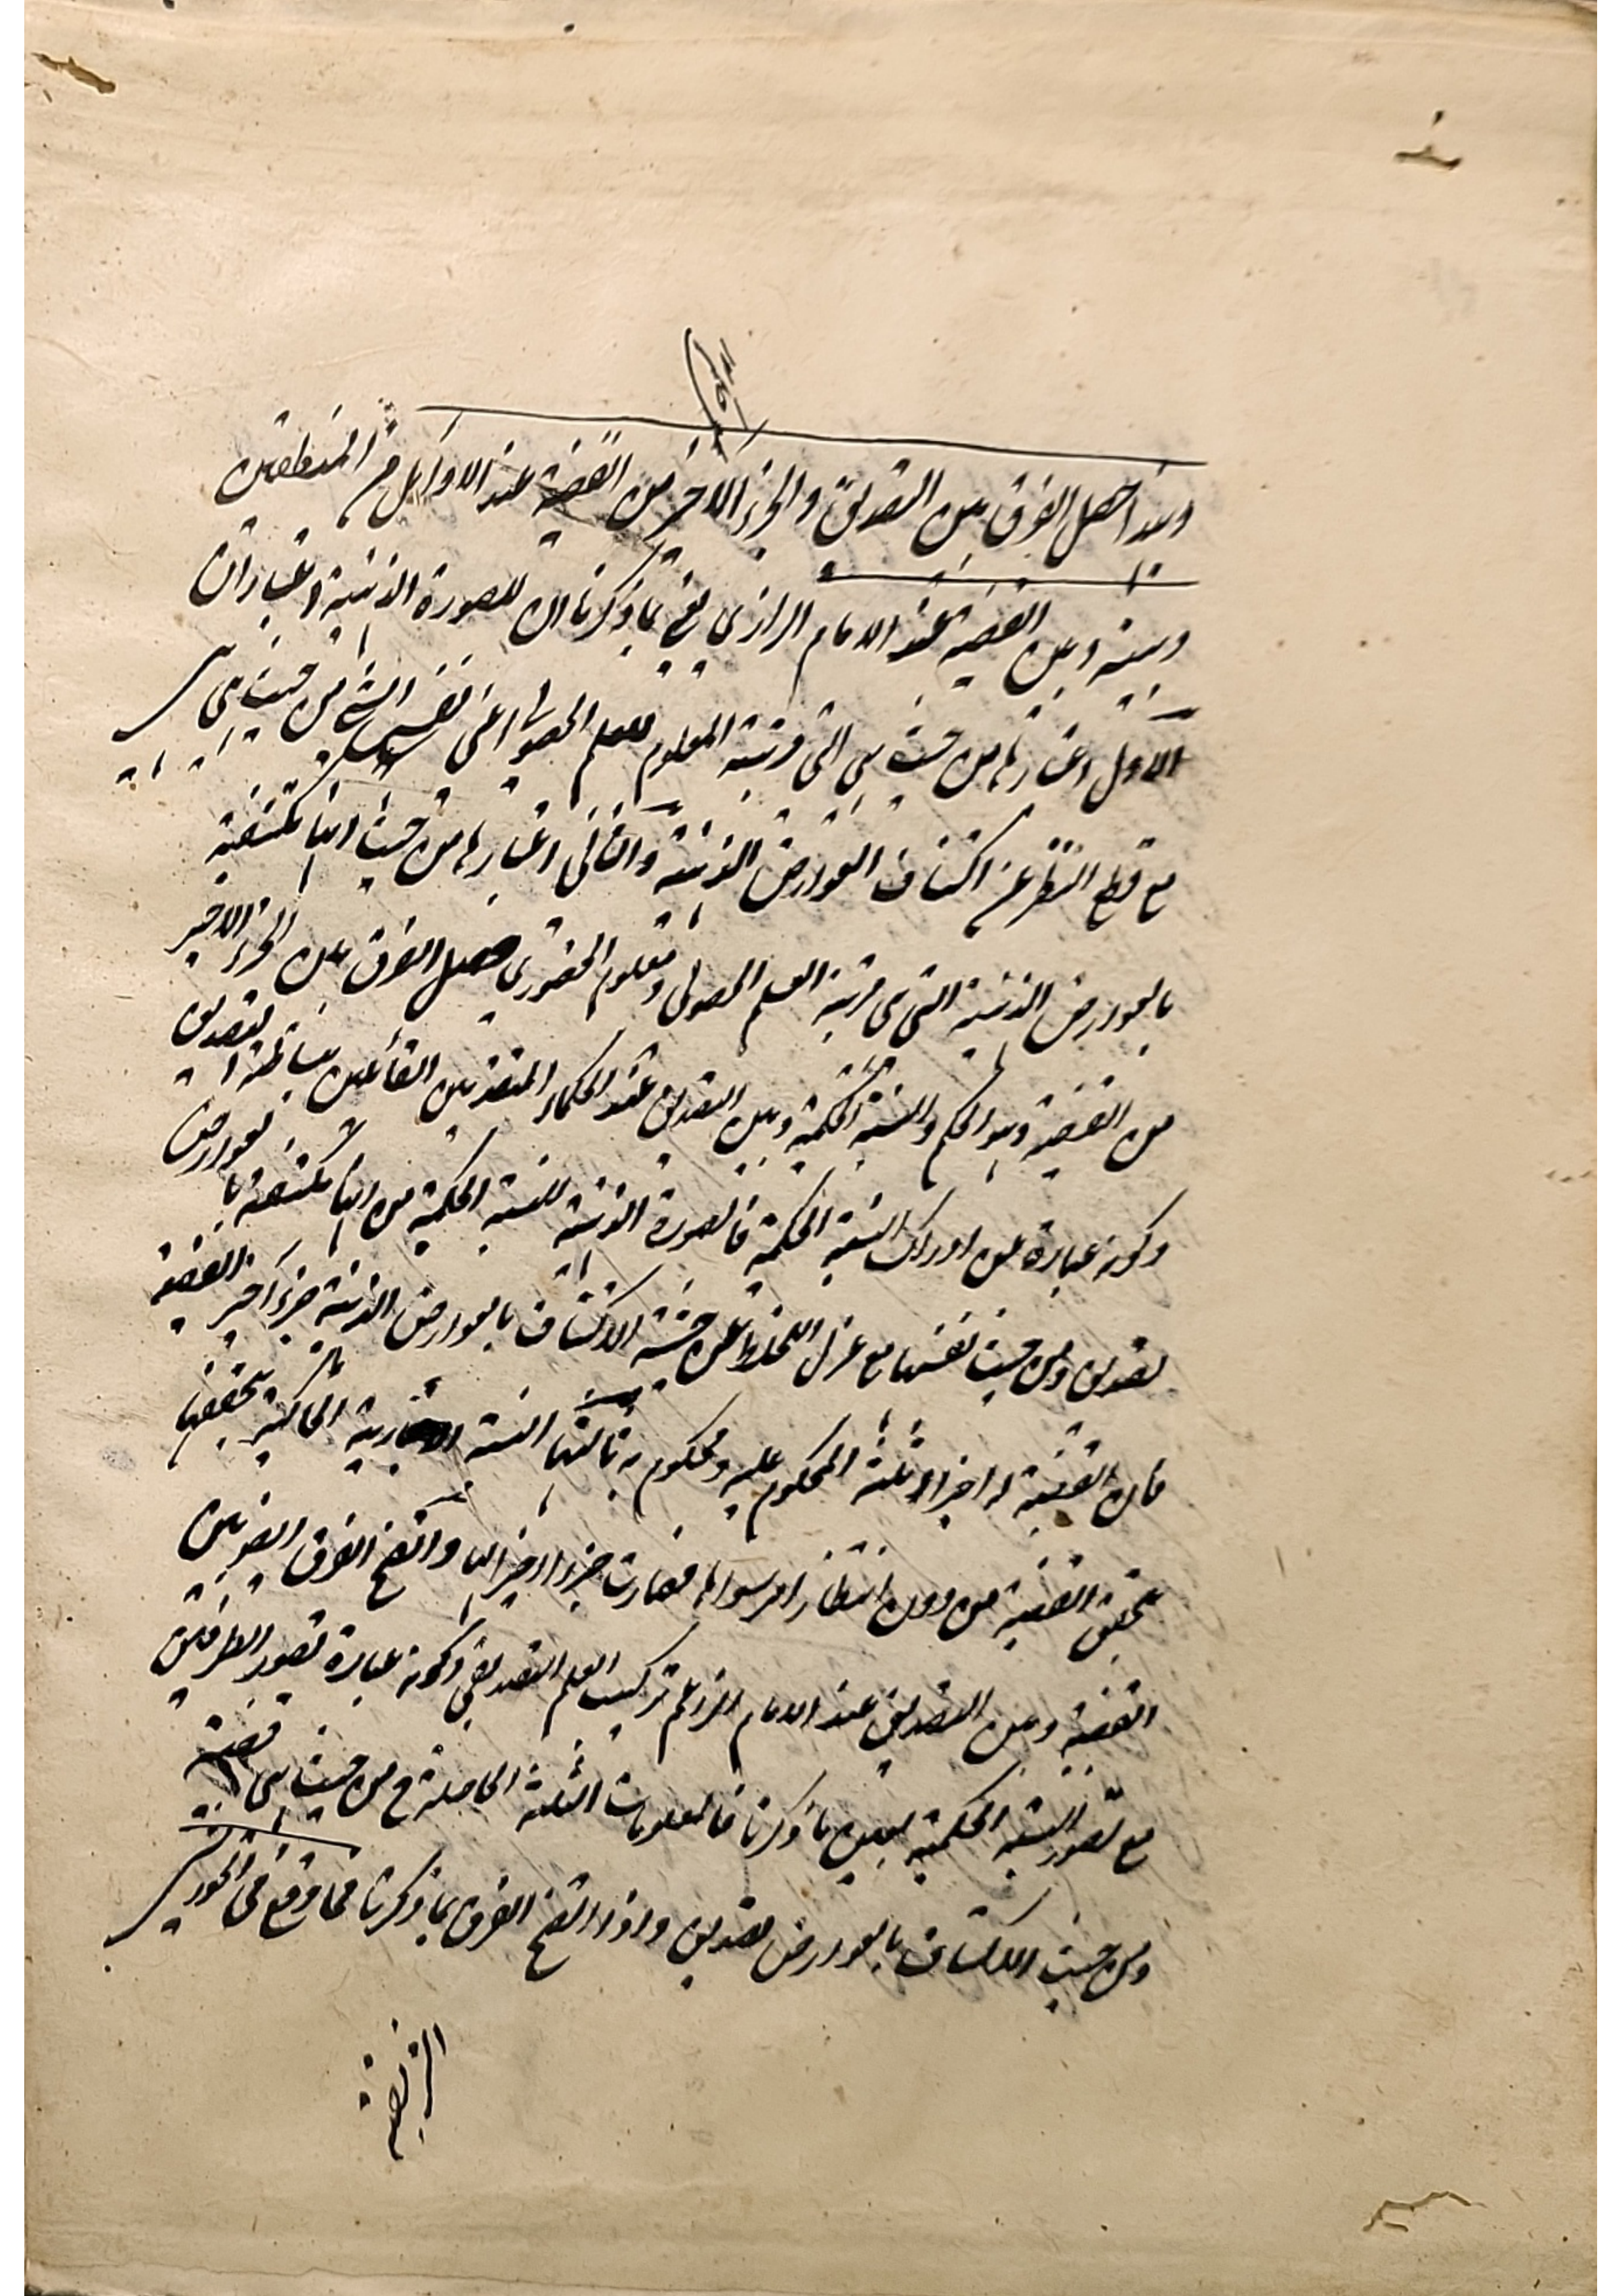 وبهذا حصل الفرق بين التصديق والجزء الاخير من القضية عند الاوائل من المنطقيين
وبينه وبين القضية عند الامام الرازي يعني بما ذكرنا ان للصورة الذهنية اعتباران
الاول اعتبارها من حيث هي التي مرتبة المعلوم للعلم الحصولي اعني نفس الشي من حيث هي هي
مع قطع النظر عن اكتناف العوارض الذهنية والثاني اعتبارها من حيث انها مكتنفة
بالعوارض الذهنية التي هي مرتبة العلم الحصولي ومعلوم الحضوري حصل الفرق بين الجزء الاخير
من القضية وهو الحكم والنسبة الحكمية وبين التصديق عند الحكماء المتقدمين القائلين ببساطة التصديق
وكونه عبارة عن ادراك النسبة الحكمية فالصورة الذهنية للنسبة الحكمية من انها مكتنفة بالعوارض
تصديق ومن حيث نفسها مع عزل اللحاظ عن حيثية الاكتناف بالعوارض الذهنية جزء اخير القضية
فان القضية له اجزاء ثلثة المحكوم عليه ومحكوم به ثالثها النسبة الاخبارية الحاكية بتحققها
تحقق القضية من دون انتظار امر سواها فصارت جزء اخيرا لها واتضح الفرق ايضا بين
القضية وبين التصديق عند الامام الزاعم تركيب العلم التصديقي وكونه عبارة تصور الطرفين
مع تصور النسبة الحكمية بعين ما ذكرنا فالمعلومات الثلثة الحاصلة ح من حيث هي هي قضية
ومن حيث الاكتناف بالعوارض تصديق واذا اتضح الفرق بما ذكرنا فما وقع في الحواشي